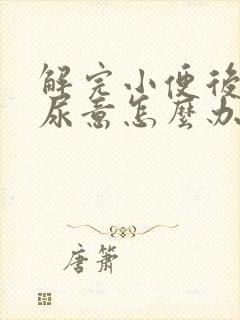 解完小便後
尿意怎麼办
唐簫